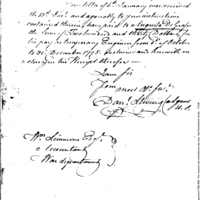 Your letter of 2d January was received
the 13th Inst. and agreeably to your instructions
contained therein have paid to Augusta De Grasse
the Sum of Two hundred and sixty Dollars for
his pay as temporary Engineer from 1st of October
to 31 December 1795 inclusive and herewith en
closed his Receipt therefor
I am Sir
Your most Ob. Ser.
Dan. Stevens
U.S.
Wm Simmons Esqr.
Accountant
War department